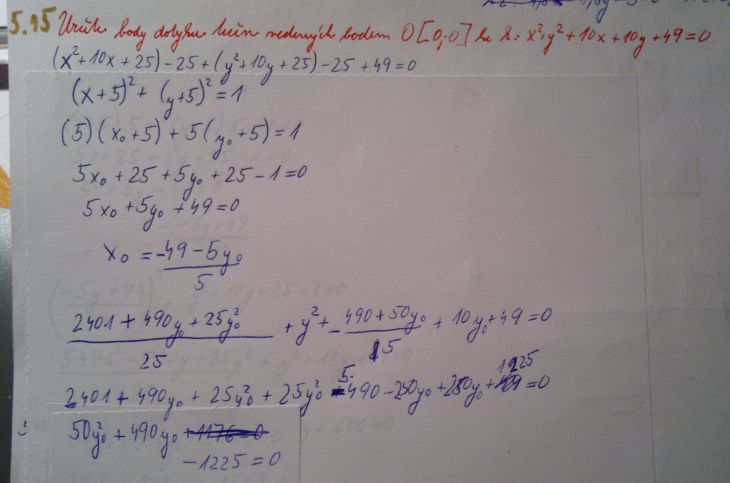 5.15 Určete body dotyku tečen vedených bodem O[0;0] ke k: x²+y²+10x+10y+49=0
(x²+10x+25)-25+(y²+10y+25)-25+49=0
(x+5)²+(y+5)²=1
(5)(x₀+5)+5(y₀+5)=1
5x₀+25+5y₀+25-1=0
5x₀+5y₀+49=0
x₀ = \frac{-49-5y₀}{5}
\frac{2401+490y₀+25y₀²}{25} + y²+ -\frac{490+50y₀}{5} + 10y₀+49=0
2401+490y₀+25y₀²+25y₀² -5·490-250y₀+250y₀+1225=0
50y₀²+490y₀ +1176=0
-1225=0